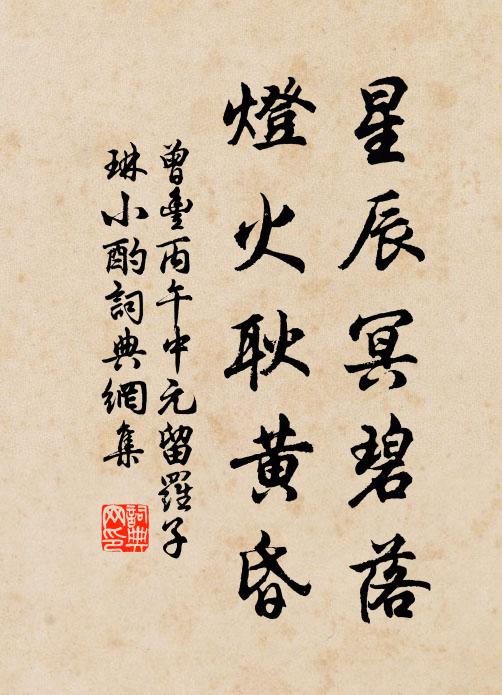 星辰冥碧落
燈火耿黃昏
曾豐丙午中元留羅子
琳小酌詞典網集
詞典网印